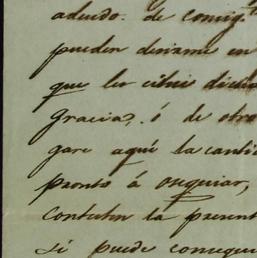 adeudo. de comig.
pueden decirme en
que les
Gracia, ó de otro
gare aquí la canti
pronto á osequiar,
contesten la present
si puede consegui